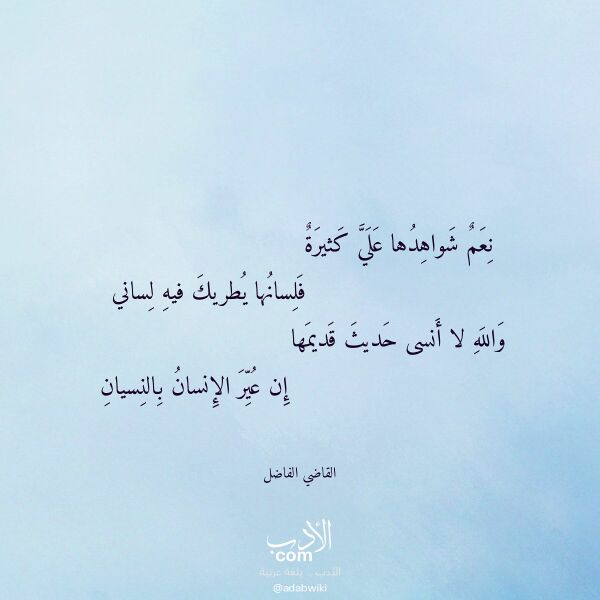 نِعَمٌ شَواهِدُها عَلَيَّ كَثيرَةٌ
فَلِسانُها يُطريكَ فيهِ لِساني
وَاللَهِ لا أَنسى حَديثَ قَديمَها
إِن عُيِّرَ الإِنسانُ بِالنِسيانِ
القاضي الفاضل
الأدب
com
الأدب .. بلغة عربية
@adabwiki